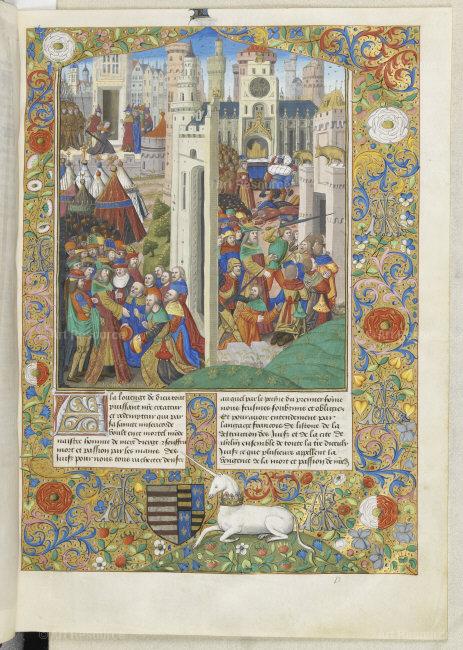 la louenge de dieu tout
puissant nre createur
et redempteur qui par
sa saincte misericorde
voult estre mortel
naistre homme de mere vierge et souffrir
mort et passion par les mains des
Juifz pour nous tous racheter
auquel par le peche du premier home
nous feusmes soubzmis et obligez
Et pour avoir entendement par
langaige francois de listoire de la
destruction des Juifz et de la cite de
ensemble de toute la
Juifz et que plusieurs appellent la
vengence de la mort et passion de